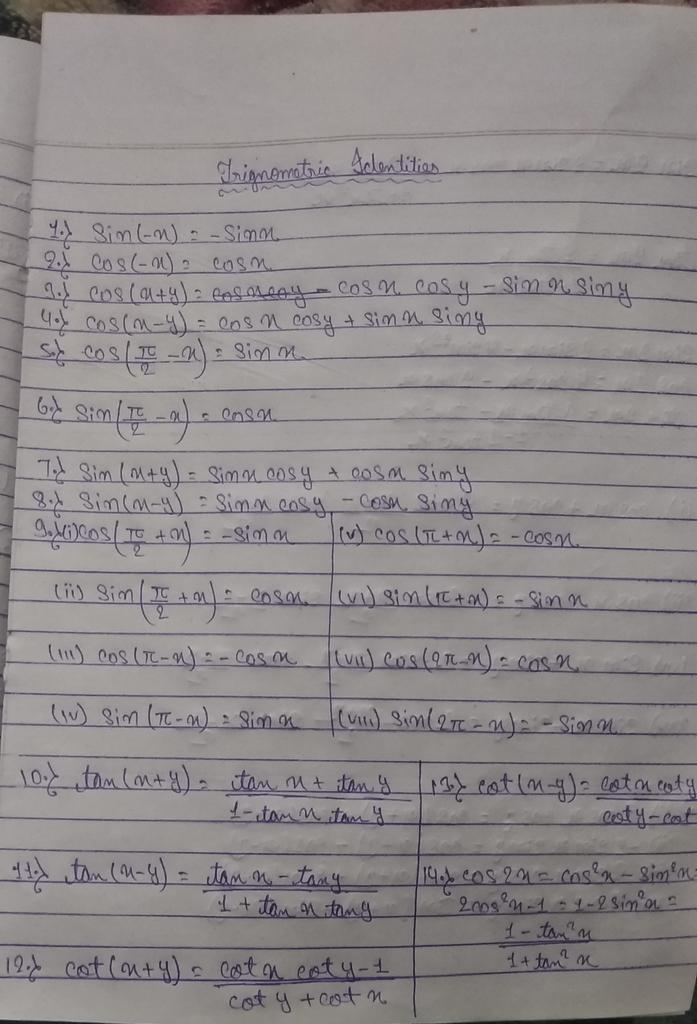 Trignometric Identities
1.} Sin(-x) = -Sinx
2.} cos(-x) = cosx
3.} cos(x+y) = cos x cos y - sin x siny
4.} cos(x-y) = cos x cosy + sinx siny
5.} cos(π/2 - x) = sin x
6.} sin(π/2 - x) = cosx
7.} Sin(x+y) = sinx cosy + cosx siny
8.} Sin(x-y) = sinx cosy - cosx siny
9.} (i) cos(π/2 + x) = -sin x
(ii) Sin(π/2 + x) = cosx
(iii) cos(π-x) = -cosx
(iv) sin(π-x) = sinx
(v) cos(π+x) = -cosx
(vi) sin(π+x) = -sinx
(vii) cos(2π-x) = cosx
(viii) sin(2π-x) = -sinx
10.} tan(x+y) = tan x + tan y / 1-tan x tan y
11.} tan(x-y) = tan x - tany / 1 + tan x tany
12.} cot(x+y) = cot x cot y-1 / cot y + cot x
13.} cot(x-y) = cotx coty / coty-cot
14.} cos2x = cos²x - sin²x =
2cos²x-1 = 1-2sin²x =
1 - tan²x / 1 + tan² x